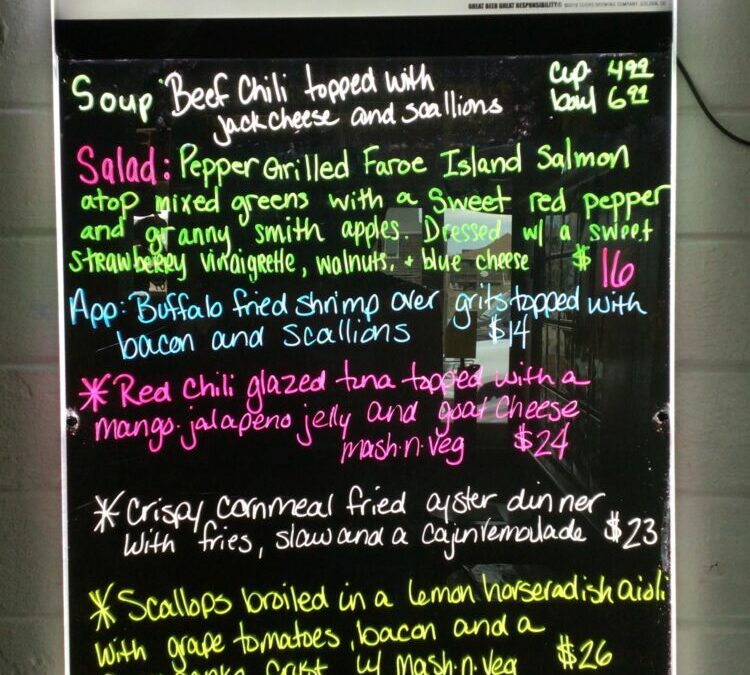 GREAT BEER GREAT RESPONSIBILITY®
Soup Beef Chili topped with cup 4.99
jack cheese and scallions bowl 6.99
Salad: Pepper Grilled Faroe Island Salmon
atop mixed greens with a sweet red pepper
and granny smith apples. Dressed w/ a sweet
strawberry vinaigrette, walnuts, + blue cheese $16
App: Buffalo fried shrimp over grits topped with
bacon and scallions $14
*Red chili glazed tuna topped with a
mango-jalapeno jelly and goat cheese
mash-n-veg $24
*Crispy cornmeal fried oyster dinner
with fries, slaw and a cajun remoulade $23
*Scallops broiled in a lemon horseradish aioli
with grape tomatoes, bacon and a
crust w/ mash-n-veg $26